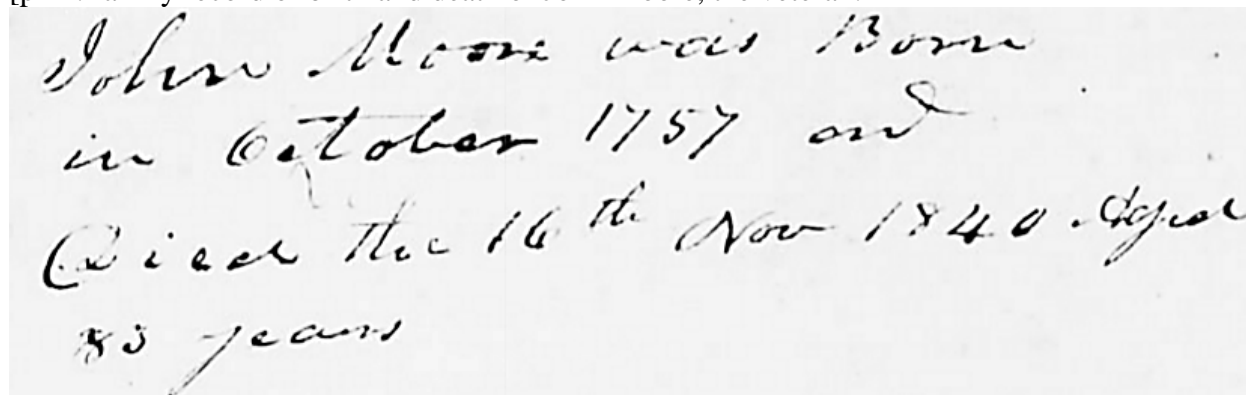 John Moore was Born
in October 1757 and
Died the 16th Nov 1840 Aged
83 years